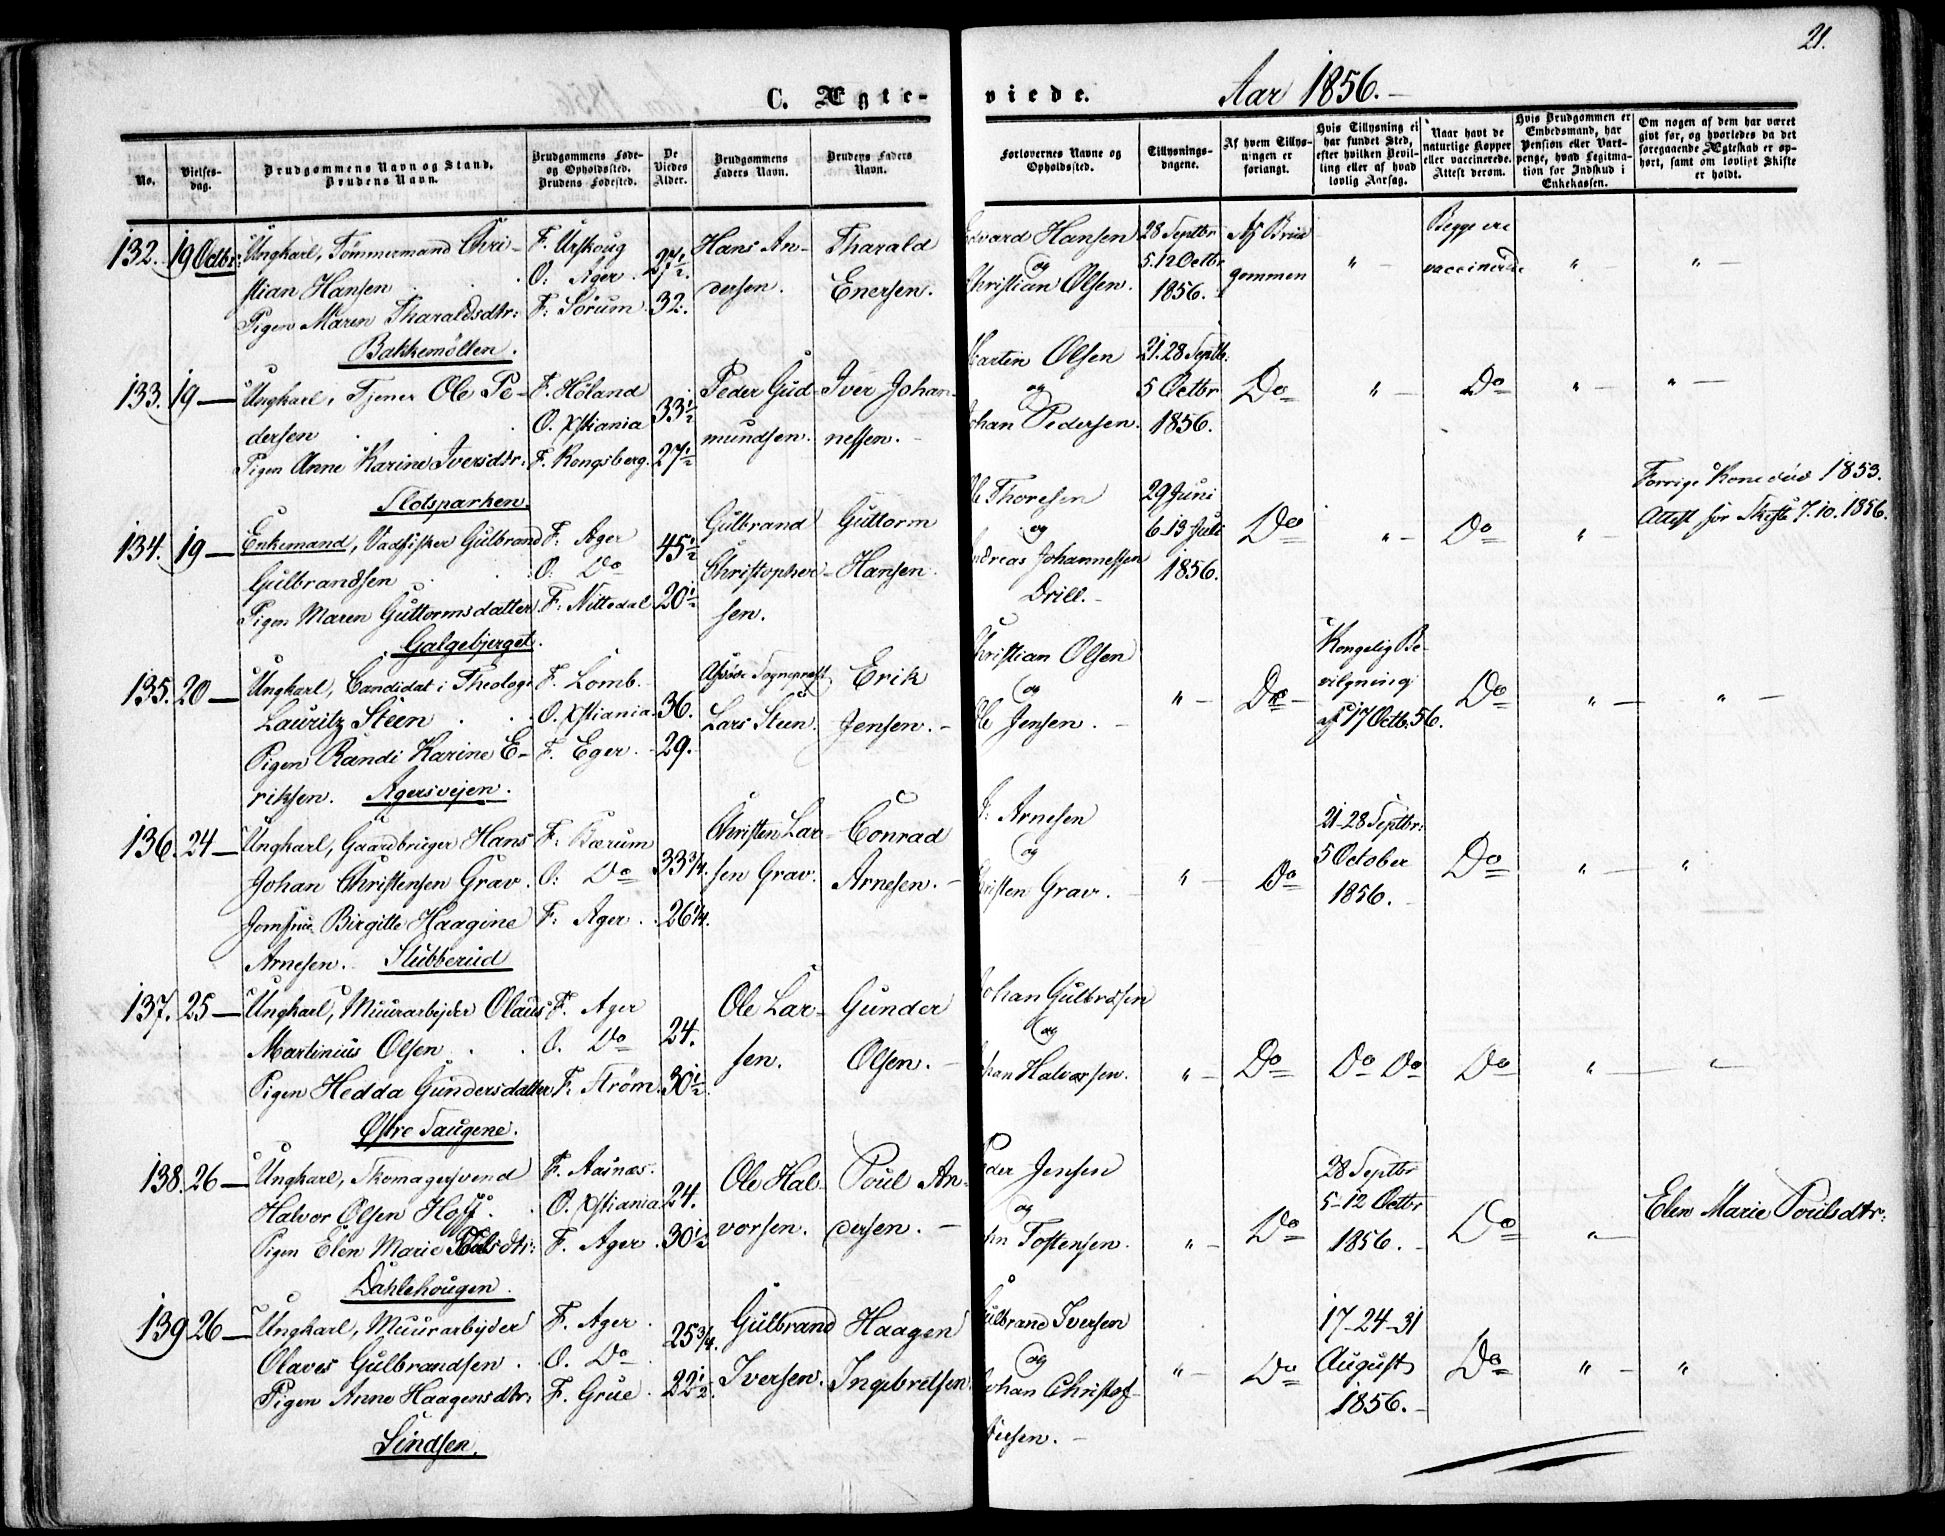 21.
C. Ægte-
viede.
Aar 1856.
No.
Vielses-
dag.
Brudgommens Navn og Stand.
Brudens Navn.
Brudgommens Føde-
og Opholdssted.
Brudens Fødested.
De
Viedes
Alder.
Brudgommens
Faders Navn.
Brudens Faders
Navn.
Forlovernes Navne og
Opholdssted.
Tillysnings-
dagene.
Af hvem Tillys-
ningen er
forlangt.
Hvis Tillysning ei
har fundet Sted,
efter hvilken Bevil-
ling eller af hvad
lovlig Aarsag.
Naar havt de
naturlige Kopper
eller vaccinerede.
Attest derom.
Hvis Brudgommen er
Embedsmand, har
Pension eller Vart-
penge, hvad Legitima-
tion for Indskud i
Enkekassen.
Om nogen af dem har været
gift før, og hvorledes da det
foregaaende Ægteskab er op-
hørt, samt om lovligt Skifte
er holdt.
132. 19 Octbr: Ungkarl, Tømmermand Chri-
stian Hansen
Pigen Maren Tharaldsdtr:
Bakkemølten.
F. Urskoug
O. Ager.
F: Sørum.
27½.
32.
Hans An-
dersen.
Tharald
Enersen.
Edvard Hansen
og
Christian Olsen.
28 Septbr
5.12 Octbr
1856.
Af Brud
gommen
" -
Begge ere
vaccinerede
" -
" -
133. 19 — Ungkarl, Tjener Ole Pe-
dersen
Pigen Anne Karine Iversdtr.
Slotsparken.
F. Høland
O. Xstiania
F. Kongsberg.
33½
27½
Peder Gud-
mundsen.
Iver Johan-
nessen.
Martin Olsen
og
Johan Pedersen.
21.28 Septb.
5 Octbr
1856.
Do
" -
Do
" -
" -
134. 19 — Enkemand, Vadfisker Gulbrand
Gulbrandsen
Pigen Maren Guttormsdatter.
Galgebjerget.
F: Ager
O: Do
F: Nittedal
45½
20½
Gulbrand
Christopher-
sen.
Guttorm
Hansen.
Ole Thoresen
og
Andreas Johannessen
Drill.
29 Juni
6 13 Juli
1856.
Do
" -
Do
" -
Forrige Kone død 1853.
Attest for Skifte 7.10.1856.
135. 20 — Ungkarl, Candidat i Theologi
Lauritz Steen
Pigen Randi Karine E-
riksen. Agersvejen.
F. Lomb.
O. Xstiania.
F. Eger.
36.
29.
Sognepræst
Lars Steen.
Erik
Jensen.
Christian Olsen
og
Ole Jensen.
" -
Do
Kongelig Be-
vilgning
af 17 Octb. 56.
Do
" -
" -
136. 24 — Ungkarl, Gaardbruger Hans
Johan Christensen Grav.
Jomfrue Birgitte Haagine
Arnesen. Slubberud
F: Bærum
O: Do
F: Ager.
33¾.
26¼.
Christen Lar-
sen Grav.
Conrad
Arnesen.
Arnesen
og
Christen Grav.
" -
Do
21-28 Septbr:
5 October
1856.
Do
" -
"
137. 25 — Ungkarl, Muurarbejder Olaus
Martinius Olsen
Pigen Hedda Gundersdatter
Østre Taugene.
F. Ager
O. Do
F: Strøm.
24.
30½.
Ole Lar-
sen.
Gunder
Olsen.
Johan Gulbrdsen
og
Johan Halvorsen.
" -
Do
Do Do
Do
" -
" -
138. 26 — Ungkarl, Skomagersvend
Halvor Olsen Hoff.
Pigen Elen Marie Poulsdtr:
Dahlehougen.
F. Aasnæs.
O. Xstiania
F. Ager.
24.
30½
Ole Hal-
vorsen.
Poul An-
dersen.
Peder Jensen
og
John Tostensen.
" -
Do
28 Septbr
5-12 Octbr
1856.
Do
" -
Elen Marie Poulsdtr:
139 26 — Ungkarl, Muurarbejder
Olaves Gulbrandsen.
Pigen Anne Haagensdtr:
Lindsen.
F. Ager.
O. Do
F. Grue.
25¾.
22½.
Gulbrand
Iversen.
Haagen
Ingebretsen.
Gulbrand Iversen
og
Johan Christof-
fersen.
" -
Do
17-24-31
August
1856.
Do
" -
"